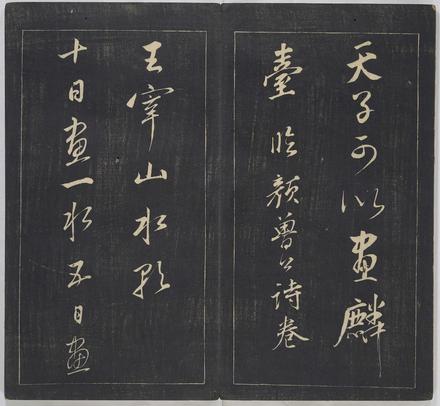 天子可以畫麟
臺臨顏魯公詩卷
王宰山水歌
十日畫一水五日畫